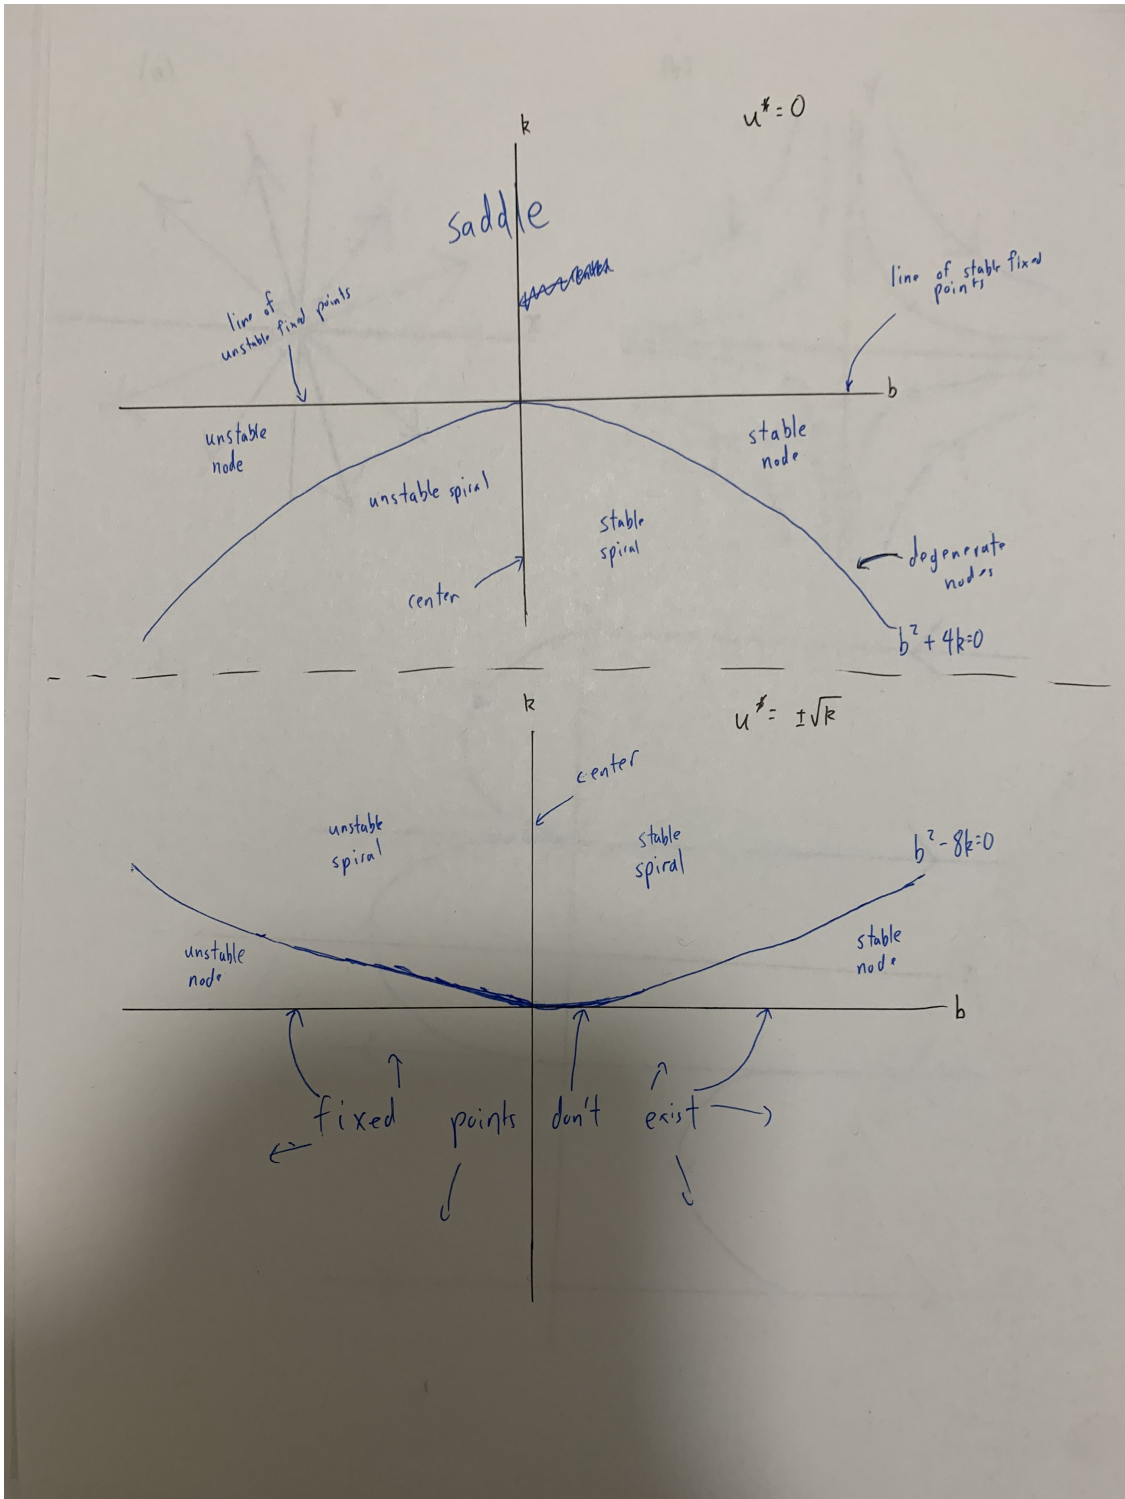 u* = 0
k
saddle
line of
unstable fixed points
line of stable fixed
points
b
unstable
node
stable
node
unstable spiral
stable
spiral
center
degenerate
nodes
b² + 4k=0
k
u* = ±√k
center
unstable
spiral
stable
spiral
b² - 8k=0
unstable
node
stable
node
b
fixed points don't exist